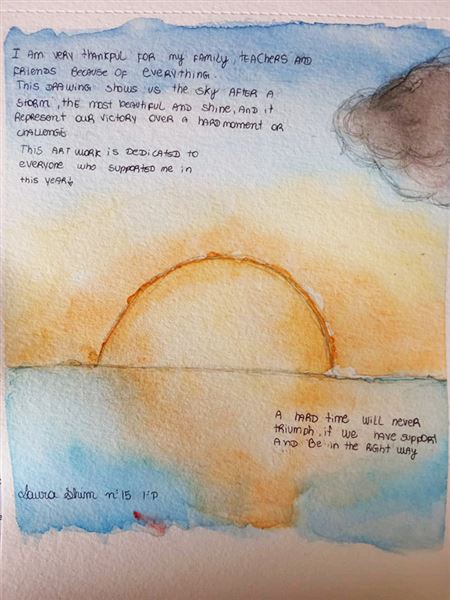 I am very thankful for my family, teachers and
friends because of everything.
This drawing shows us the sky after a
storm, the most beautiful and shine, and it
represent our victory over a hard moment or
challenge
This art work is dedicated to
everyone who supported me in
this year
A hard time will never
triumph, if we have support
and be in the right way
Laura n° 15 1°D